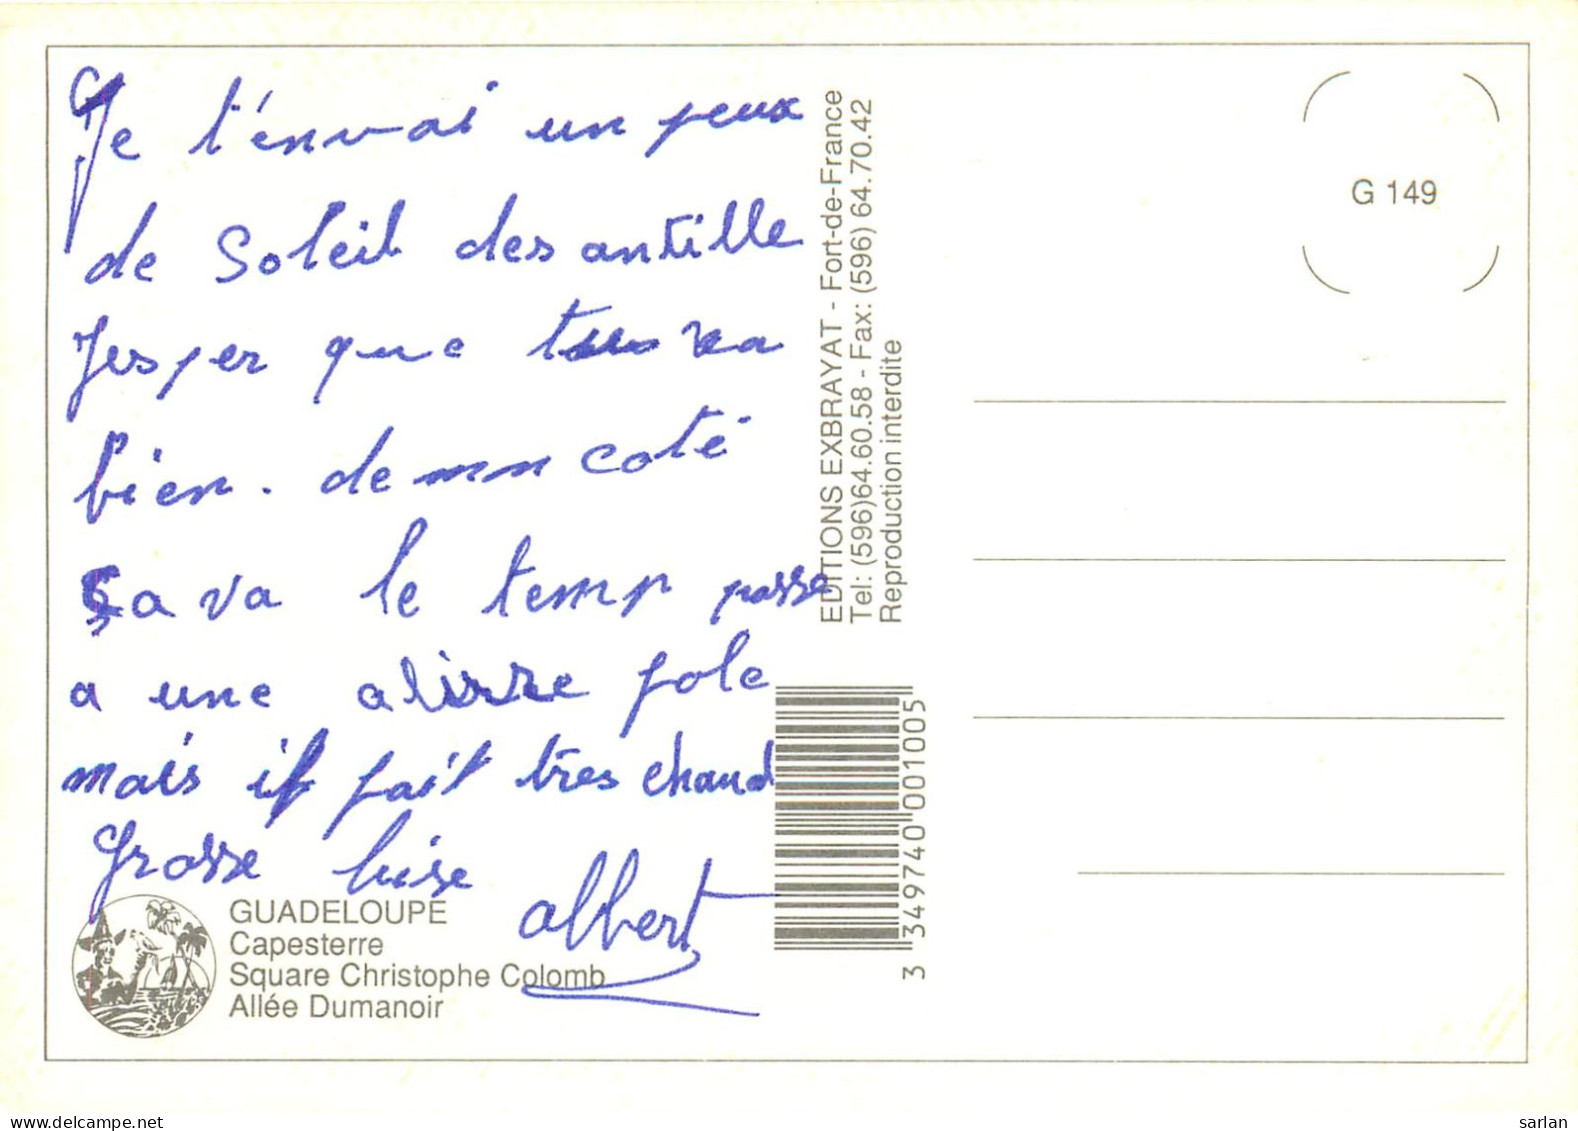 Je t'énvai un peux
de Soleil des antille
Jesper que tu va
bien. de mon coté
ça va le temp passe
a une alisse fole
mais il fait très chaud
Grosse bise
albert
GUADELOUPE
Capesterre
Square Christophe Colomb
Allée Dumanoir
EDITIONS EXBRAYAT - Fort-de-France
Tel: (596)64.60.58 - Fax: (596) 64.70.42
Reproduction interdite
3 349740 001005
G 149
delcampe.net
sarlan